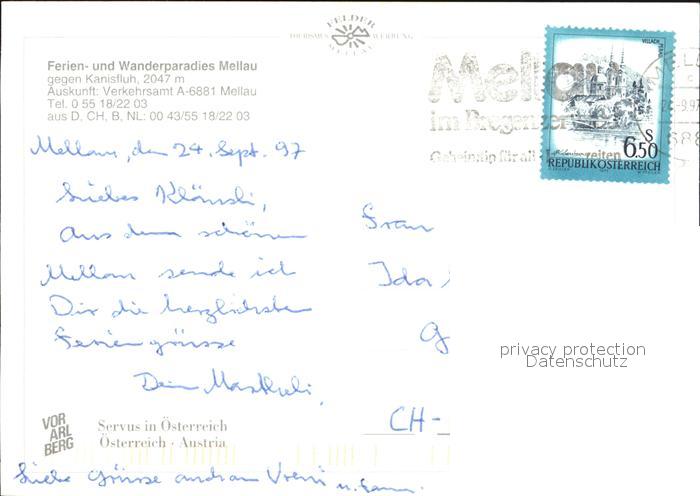 FELDER
TOURISMUS WERBUNG
MELLAU
Ferien- und Wanderparadies Mellau
gegen Kanisfluh, 2047 m
Auskunft: Verkehrsamt A-6881 Mellau
Tel. 0 55 18/22 03
aus D, CH, B, NL: 00 43/55 18/22 03
Mellau
im Bregenzer
Geheimtip für all
zeiten
VILLACH
S
6.50
REPUBLIK ÖSTERREICH
Mellau, den 24. Sept. 97
Liebes
aus dem schönen
Mellau sende ich
Dir die herzlichsten
Feriengrüsse
Dein
Frau
Ida
G
CH-
privacy protection
Datenschutz
VOR
ARL
BERG
Servus in Österreich
Österreich · Austria
Liebe Grüsse auch an Vreni u. Fam.